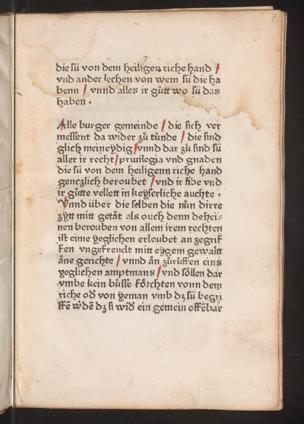 die sü von dem heiligen riche hand /
vnd ander lechen von wem sü die ha
benn / vnnd alles ir gůtt wo sü das
haben .
Alle burger gemeinde / die sich ver
messent da wider zů tůnde / die sind
glich meineydig / vnnd dar zů sind sü
aller ir recht / priuilegia vnd gnaden
die sü von dem heiligenn riche hand
gentzlich beroubet / vnd ir libe vnd
ir gůtte vellet in keyserliche auchte .
Vnnd über die selben die nün dirre
zytt mitt getät als ouch denn
nen berouben von allem irem rechten
ist eine yeglichen erloubet an zegrif
fen vngefreuelt mitt eygem gewaltt
äne gerichte / vnnd än zůrüffen eins
yeglichen amptmans / vnd söllen dar
vmbe kein büsse förchten vonn dem
riche od von yeman vmb dz sü begri
ffē wdē dz si wid ein gemein offēbar